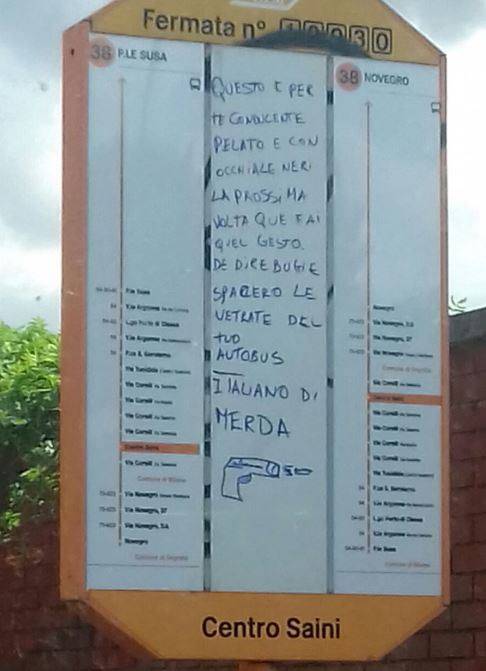 Fermata n°
38 P.LE SUSA
38 NOVEGRO
QUESTO E PER
TE CONDUCENTE
PELATO E CON
OCCHIALE NERI
LA PROSSIMA
VOLTA QUE FAI
QUEL GESTO.
DE DIRE BUGIE
SPACERO LE
VETRATE DEL
TUO
AUTOBUS
ITALIANO DI
MERDA
P.le Susa
Via Argonne
Lgo Porto di Classe
Via Argonne
P.za S. Gerolamo
Via Tucidide
Via Corelli
Via Corelli
Via Corelli
Via Corelli
Via Corelli
Centro Saini
Via Corelli
Comune di Milano
Via Novegro
Via Novegro, 37
Via Novegro, 3A
Novegro
Comune di Segrate
Novegro
Via Novegro, 3A
Via Novegro, 37
Via Novegro
Comune di Segrate
Via Corelli
Centro Saini
Via Corelli
Via Corelli
Via Corelli
Via Corelli
Via Tucidide
P.za S. Gerolamo
Via Argonne
Lgo Porto di Classe
Via Argonne
P.le Susa
Comune di Milano
Centro Saini